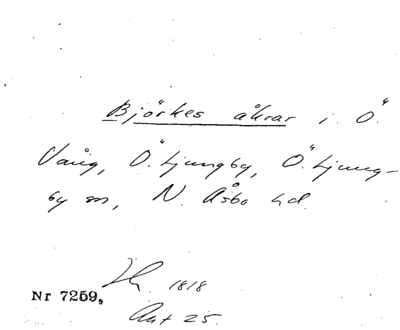 Björkes åkrar i Ö.
Vång, Ö. Ljungby, Ö. Ljung-
by sn, N. Åsbo hd.
1818
Nr 7259,
Akt 25.